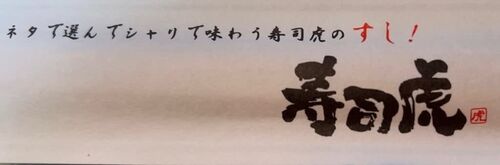 ネタで選んでシャリで味わう寿司虎のすし！
寿司虎
虎